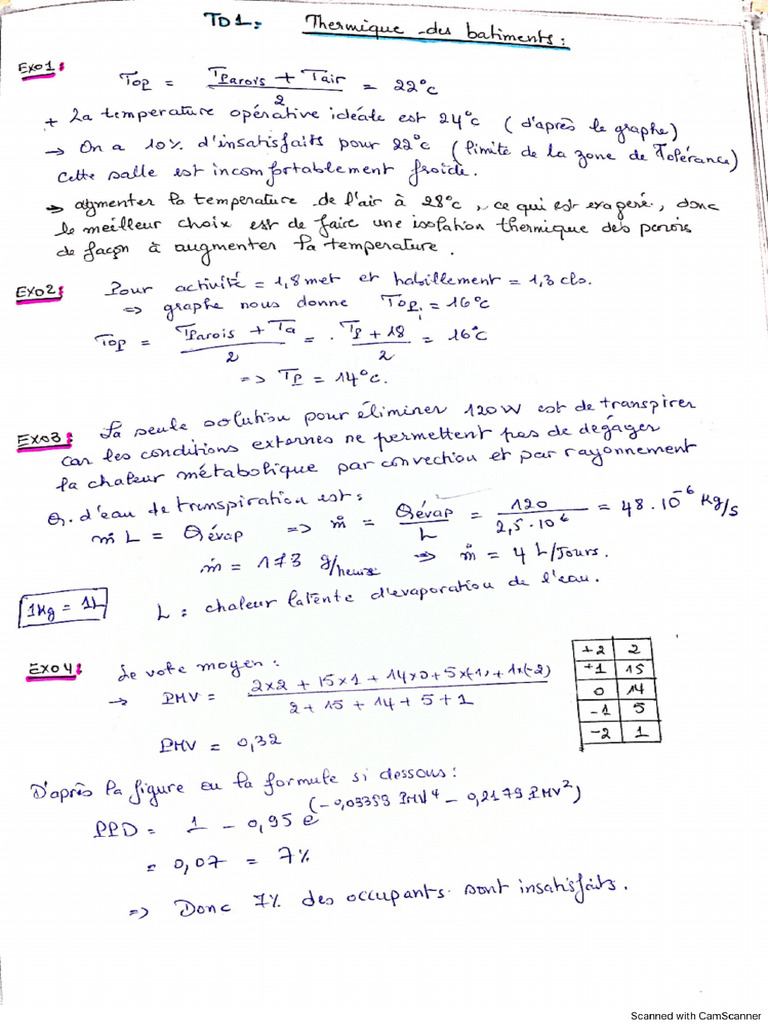 TD1: Thermique des batiments:
Exo1:
Top = (Tparois + Tair)/2 = 22°c
+ La temperature opérative idéale est 24°c (d'après le graphe)
→ On a 10% d'insatisfaits pour 22°c (limite de la zone de Tolérance)
Cette salle est incomfortablement froide.
→ augmenter la temperature de l'air à 28°c, ce qui est exageré, donc
le meilleur choix est de faire une isolation thermique des parois
de façon à augmenter la temperature.
Exo2: Pour activité = 1,8 met et habillement = 1,3 clo.
=> graphe nous donne Top = 16°c
Top = (Tparois + Ta)/2 = (Tp + 18)/2 = 16°c
=> Tp = 14°c.
Exo3: La seule solution pour éliminer 120W est de transpirer
car les conditions externes ne permettent pas de dégager
la chaleur métabolique par convection et par rayonnement
Q. d'eau de transpiration est:
ṁ L = Qévap => ṁ = Qévap/L = 120/(2,5.10^6) = 48.10^-6 Kg/s
ṁ = 173 g/heure => ṁ = 4 L/Jours.
1Kg = 1L
L: chaleur latente d'evaporation de l'eau.
Exo4: Le vote moyen:
→ PMV = (2x2 + 15x1 + 14x0 + 5x(-1) + 1x(-2))/(2 + 15 + 14 + 5 + 1)
PMV = 0,32
+2 2
+1 15
0 14
-1 5
-2 1
D'après la figure ou la formule si dessous:
PPD = 1 - 0,95 e^(-0,03353 PMV^4 - 0,2179 PMV^2)
= 0,07 = 7%
=> Donc 7% des occupants sont insatisfaits.
Scanned with CamScanner